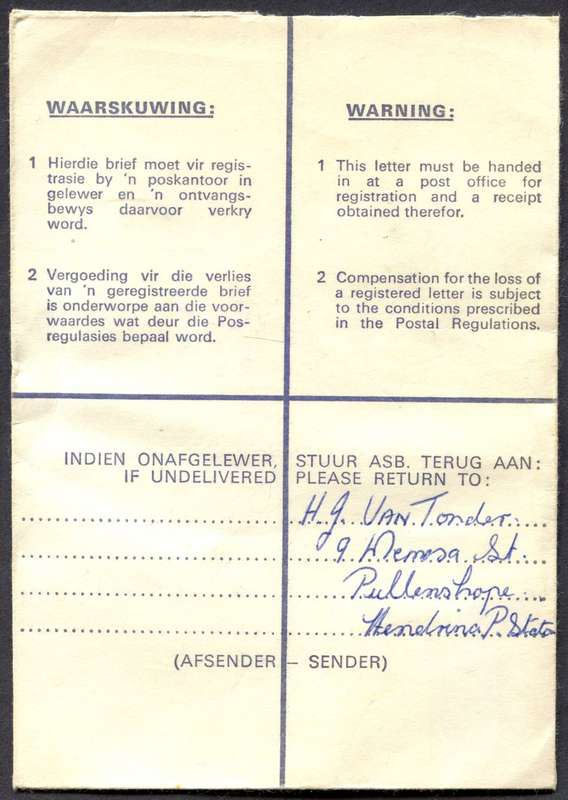 WAARSKUWING:
1 Hierdie brief moet vir regis-
trasie by 'n poskantoor in
gelewer en 'n ontvangs-
bewys daarvoor verkry
word.
2 Vergoeding vir die verlies
van 'n geregistreerde brief
is onderworpe aan die voor-
waardes wat deur die Pos-
regulasies bepaal word.
WARNING:
1 This letter must be handed
in at a post office for
registration and a receipt
obtained therefor.
2 Compensation for the loss of
a registered letter is subject
to the conditions prescribed
in the Postal Regulations.
INDIEN ONAFGELEWER, STUUR ASB. TERUG AAN:
IF UNDELIVERED PLEASE RETURN TO:
H. J. Van Tonder
9 St.
Pullenshope
Hendrina P. Stato
(AFSENDER – SENDER)